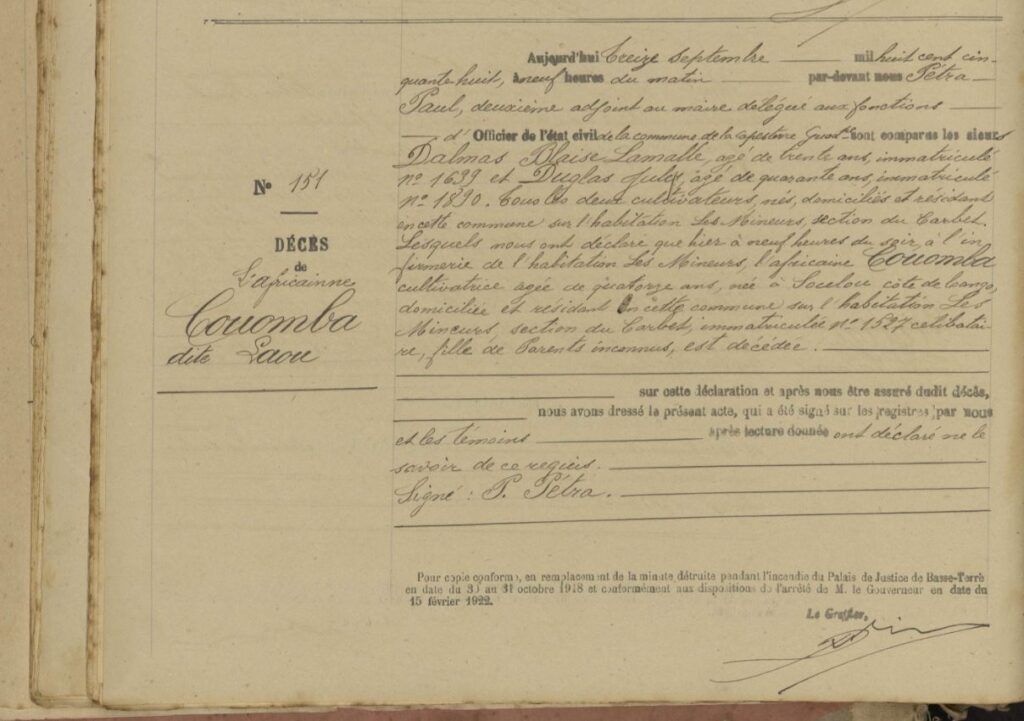 Aujourd'hui treize septembre mil huit cent cin-
quante huit, à neuf heures du matin par-devant nous Pétra
Paul, deuxième adjoint au maire délégué aux fonctions
d'Officier de l'état civil de la commune de la Capesterre Guad.pe sont comparus les sieurs
Dalmas Blaise Lamalle, agé de trente ans, immatriculé
nº 1639 et Duglas July, agé de quarante ans, immatriculé
nº 1890. Tous les deux cultivateurs, nés, domiciliés et résidant
en cette commune sur l'habitation Les Mineurs, section du Carbet.
Lesquels nous ont déclaré que hier à neuf heures du soir, à l'in
firmerie de l'habitation Les Mineurs, l'africaine Couomba
cultivatrice agée de quatorze ans, née à Socelou côte de loango,
domiciliée et résidant en cette commune sur l'habitation Les
Mineurs, section du Carbet, immatriculée nº 1527 célibatai
re, fille de Parents inconnus, est décédée.
Nº 151
DÉCÈS
de
L'africainne
Couomba
dite Laou
sur cette déclaration et après nous être assuré dudit décès,
nous avons dressé le présent acte, qui a été signé sur les registres par nous
et les témoins après lecture donnée ont déclaré ne le
savoir de ce regicis.
Signé : P. Pétra.
Pour copie conforme, en remplacement de la minute détruite pendant l'incendie du Palais de Justice de Basse-Terre
en date du 30 au 31 octobre 1918 et conformément aux dispositions de l'arrêté de M. le Gouverneur en date du
15 février 1922.
Le Greffier,